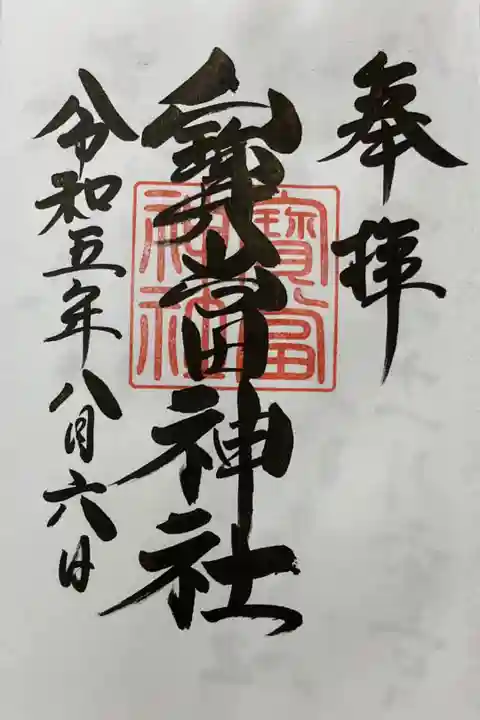 奉拝
寶當神社
令和五年八月六日
寶當
神社